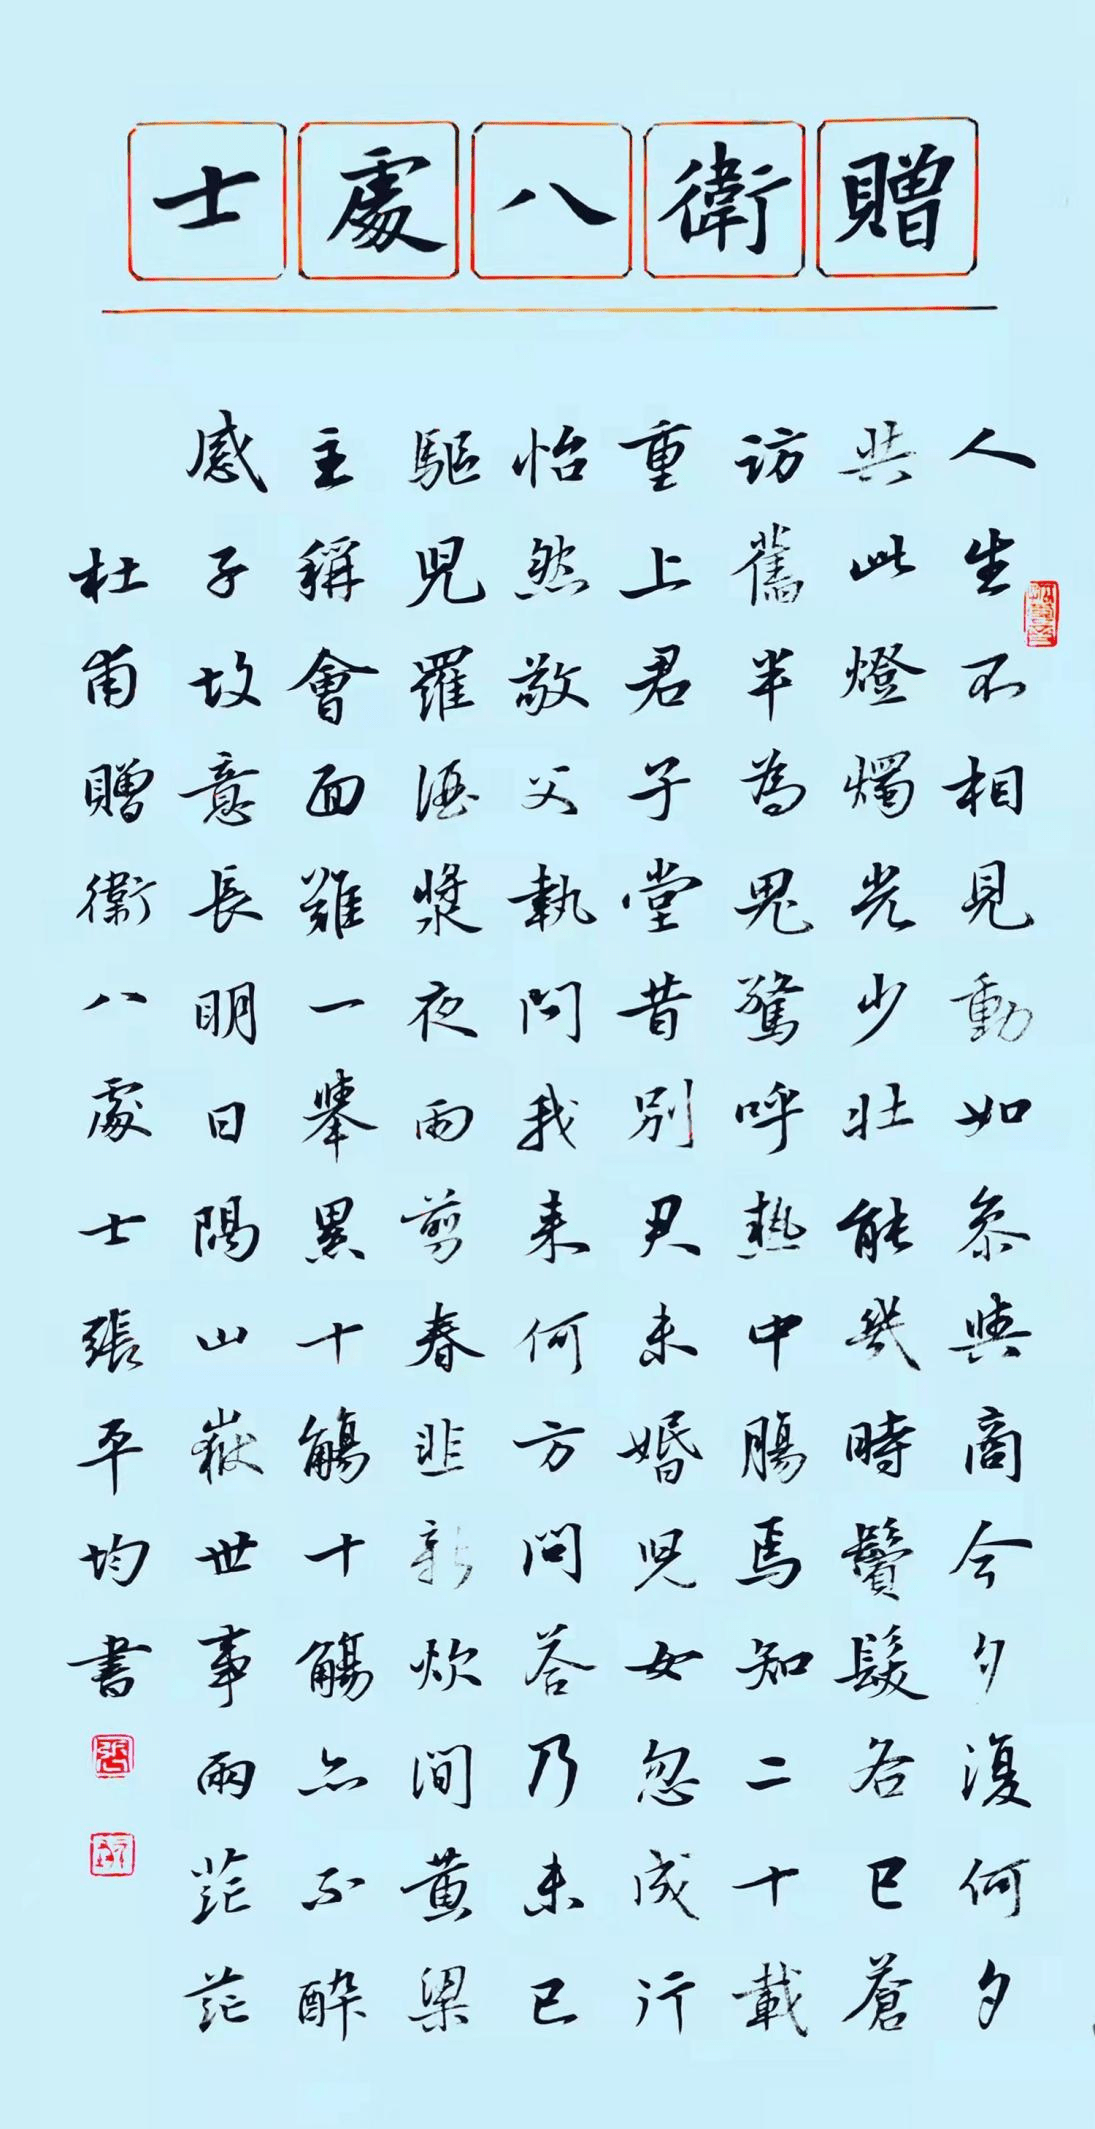 贈衛八處士
人生不相見動如參與商今夕復何夕
共此燈燭光少壯能幾時鬢髮各已蒼
訪舊半為鬼驚呼熱中腸焉知二十載
重上君子堂昔別君未婚兒女忽成行
怡然敬父執問我來何方問答乃未已
驅兒羅酒漿夜雨剪春韭新炊間黃粱
主稱會面難一舉累十觴十觴亦不醉
感子故意長明日隔山嶽世事兩茫茫
杜甫贈衛八處士張平均書